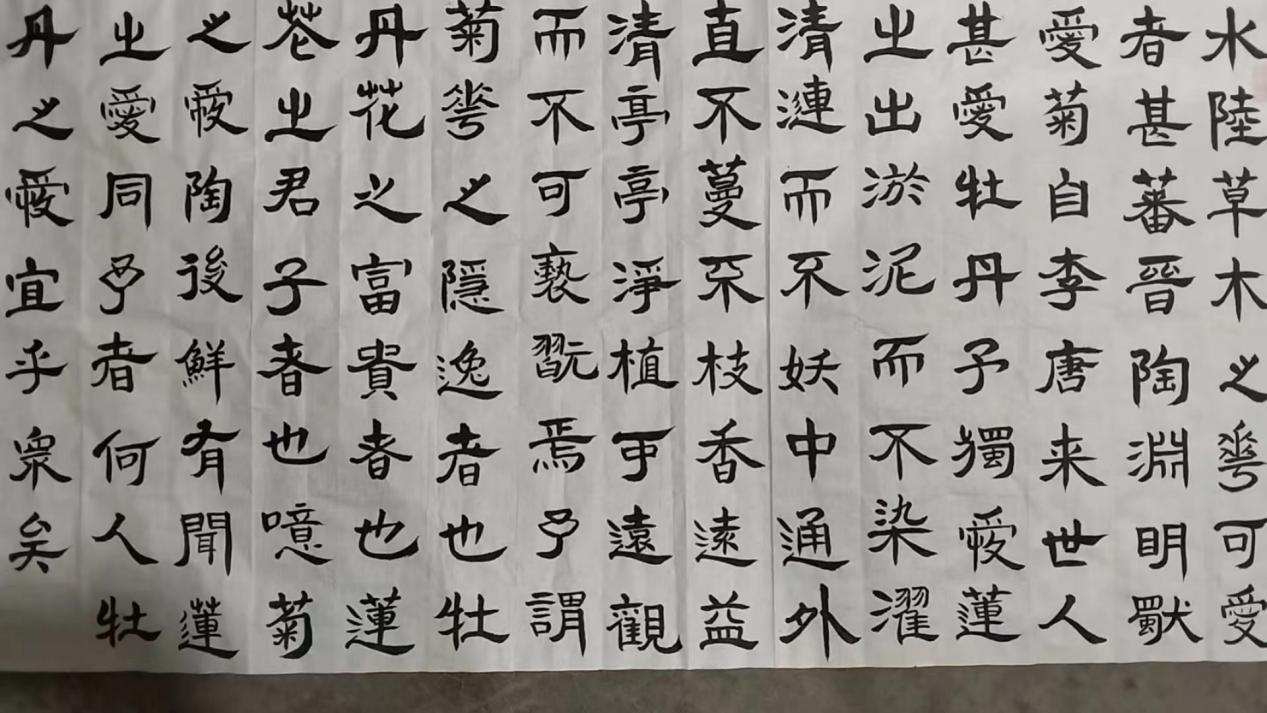 水陸草木之花可愛
者甚蕃晉陶淵明獸
愛菊自李唐来世人
甚愛牡丹予獨愛蓮
之出淤泥而不染濯
清漣而不妖中通外
直不蔓不枝香遠益
清亭亭淨植可遠觀
而不可褻翫焉予謂
菊花之隱逸者也牡
丹花之富貴者也蓮
花之君子者也噫菊
之愛陶後鮮有聞蓮
之愛同予者何人牡
丹之愛宜乎眾矣